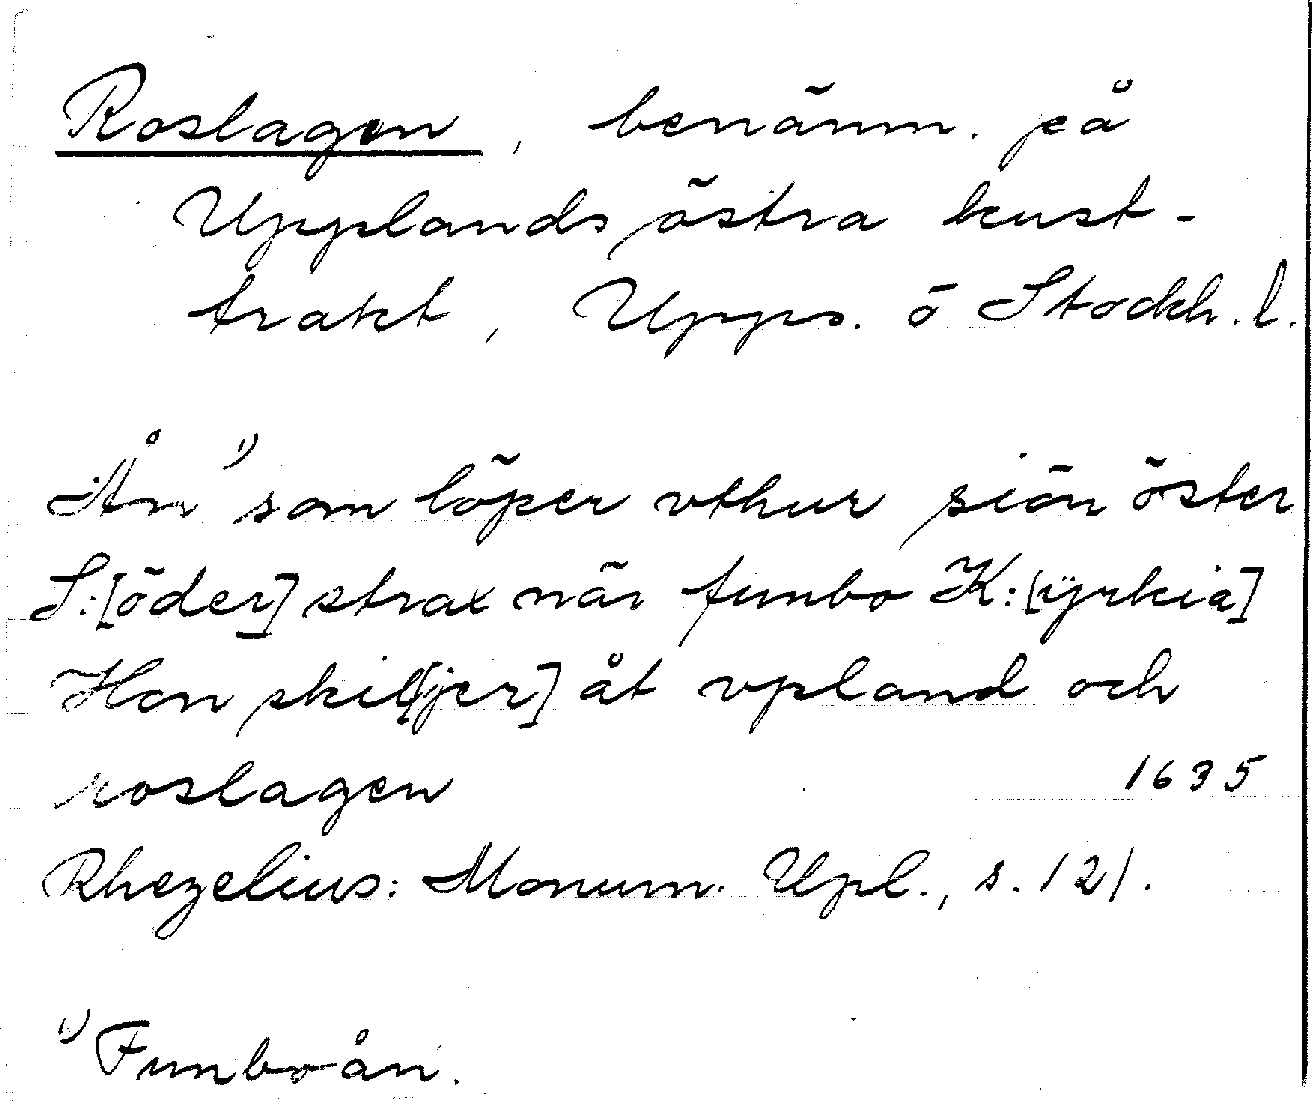 Roslagen, benämn. på
Upplands östra kust-
trakt, Upps. o Stockh. l.
Ån 1) som löper vthur siön öster
S:[öder] strax när funbo K:[yrkia]
Hon skil[jer] åt vpland och
roslagen 1635
Rhezelius: Monum. Upl., s. 121.
1) Funboån.